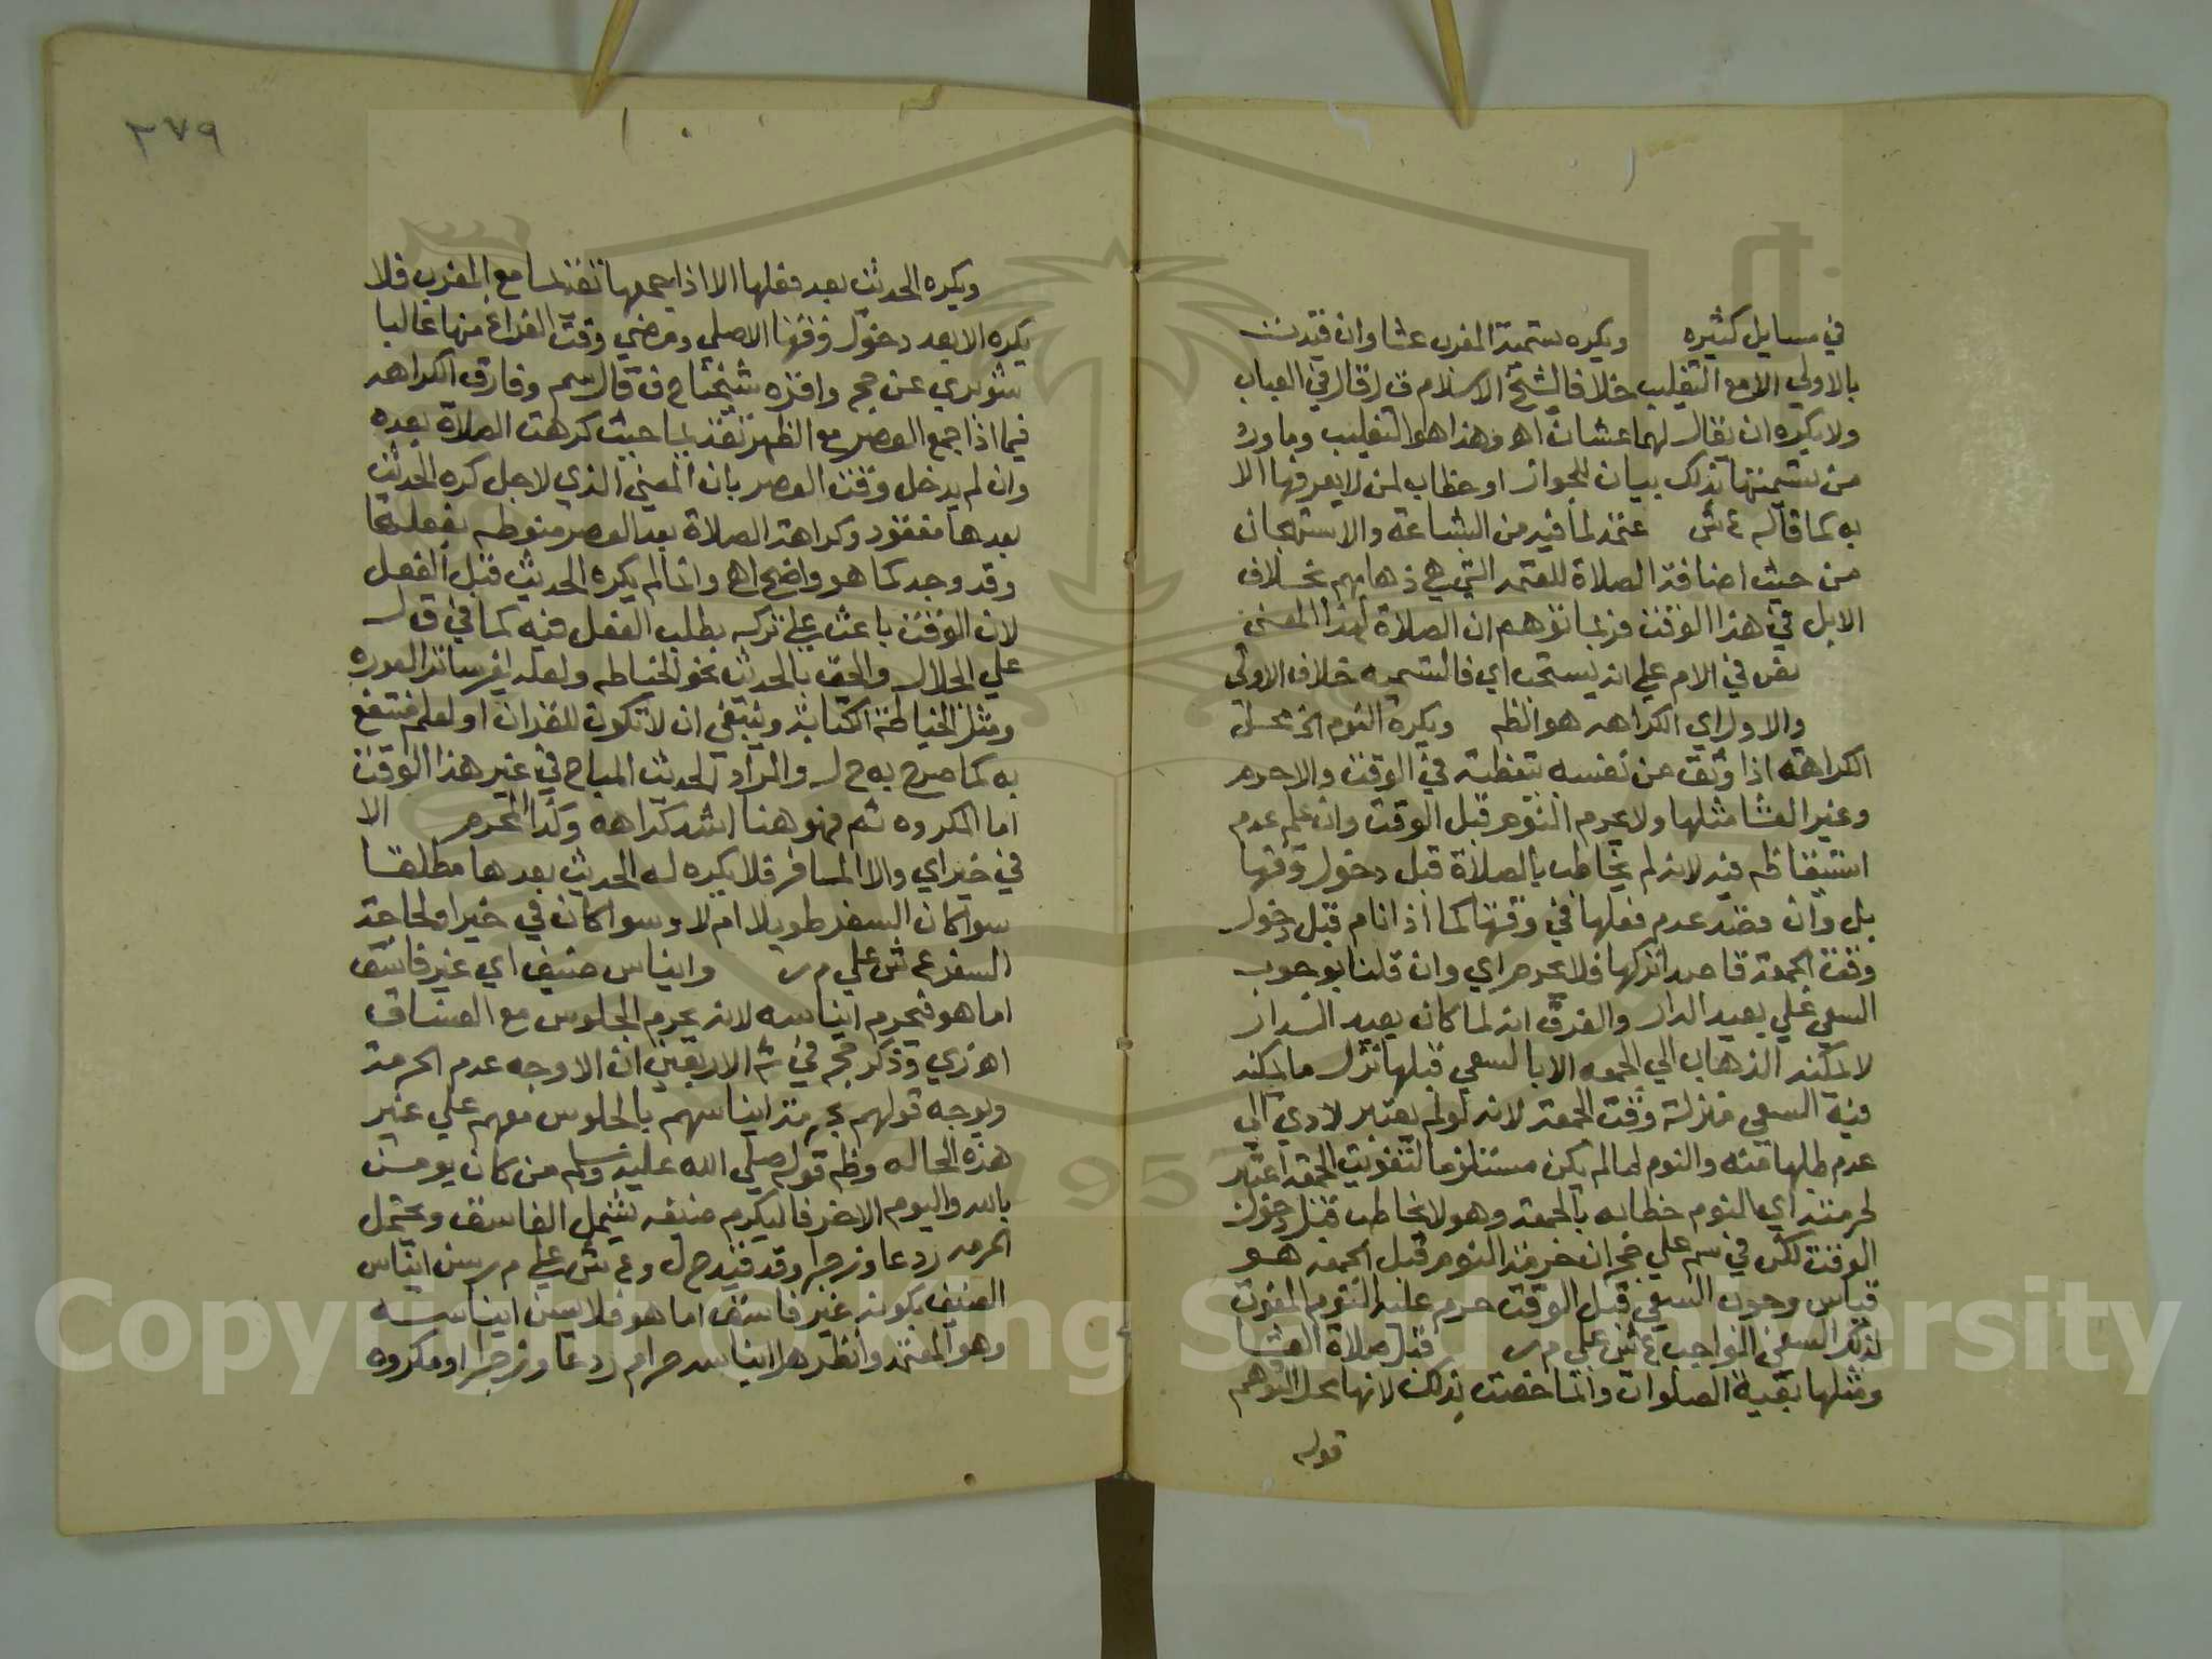 في مسايل كثيره ويكره تسمية المغرب عشا وان قيدت
بالاولي الا مع التغليب خلافا لشيخ الاسلام ق ل قال في العباب
ولا يكره ان يقال لهما عشان اه وهذا هو التغليب وما ورد
من تسميتها بذلك بيان للجواز او خطاب لمن لا يعرفها الا
به كما قاله ع ش عتمة لما فيه من البشاعة والاستهجان
من حيث اضافة الصلاة للعتمة التي هي ذهابهم بخلاف
الابل في هذا الوقت فربما توهم ان الصلاة لهذا المعني
نص في الام علي انه يستحب اي فالتسمية خلاف الاولي
والاول اي الكراهه هو الظه ويكره النوم الخ محل
الكراهة اذا وثق من نفسه بيقظته في الوقت والا حرم
وغير العشا مثلها ولا يحرم النوم قبل الوقت وان علم عدم
استيقاظه فيه لانه لم يخاطب بالصلاة قبل دخول وقتها
بل وان قصد عدم فعلها في وقتها كما اذا نام قبل دخول
وقت الجمعة قاصدا تركها فلا يحرم اي وان قلنا بوجوب
السعي علي بعيد الدار والفرق انه لما كان بعيد الدار
لا يمكنه الذهاب الي الجمعه الا بالسعي قبلها نزل ما يمكنه
فيه السعي منزلة وقت الجمعة لانه لو لم يعتبر لادي الي
عدم طلبها منه والنوم لما لم يكن مستلزما لتفويت الجمعة اعتبر
لحرمته اي النوم خطابه بالجمعة وهو لا يخاطب قبل دخول
الوقت لكن في سم علي حج ان حرمة النوم قبل الجمعه هو
قياس وجوب السعي قبل الوقت حرم عليه النوم المفوت
لذلك السعي الواجب ع ش علي م ر قبل صلاة العشا
ومثلها بقية الصلوات وانما خصت بذلك لانها محل التوهم
قوله
٢٧٩
ويكره الحديث بعد فعلها الا اذا جمعها تقديما مع المغرب فلا
يكره الا بعد دخول وقتها الاصلي ومضي وقت الفراغ منها غالبا
شوبري عن حج واقره شيخنا ح ف قال سم وفارق الكراهه
فيما اذا جمع العصر مع الظهر تقديما حيث كرهت الصلاة بعده
وان لم يدخل وقت العصر بان المعني الذي لاجل كره الحديث
بعدها مفقود وكراهة الصلاة بعد العصر منوطه بفعلها
وقد وجد كما هو واضح اه وانما لم يكره الحديث قبل الفعل
لان الوقت باعث علي تركه بطلب الفعل فيه كما في ق ل
علي الجلال والحق بالحديث نحو الخياطه ولعله لغير ساتر العوره
ومثل الخياطة الكتابة وينبغي ان لا تكون للقران او لعلم منتفع
به كما صرح به ح ل والمراد الحديث المباح في غير هذا الوقت
اما المكروه ثم فهو هنا اشد كراهه وكذا المحرم الا
في خير اي والا المسافر فلا يكره له الحديث بعدها مطلقا
سوا كان السفر طويلا ام لا وسوا كان في خير او لحاجة
السفر ع ش علي م ر وايناس ضيف اي غير فاسق
اما هو فيحرم ايناسه لانه يحرم الجلوس مع الفساق
اه زي وذكر حج في ش الاربعين ان الاوجه عدم الحرمة
ويوجه قولهم بحرمة ايناسهم بالجلوس معهم علي غير
هذه الحاله وظه قوله صلي الله عليه وسلم من كان يومن
بالله واليوم الاخر فاليكرم ضيفه يشمل الفاسق ويحتمل
الحرمه ردعا وزجرا وقد قيد ح ل وع ش علي م ر سن ايناس
الضيف بكونه غير فاسق اما هو فلا يسن ايناسه
وهو المعتمد وانظر هل ايناسه حرام ردعا وزجرا او مكروه
Copyright © King Saud University
1957